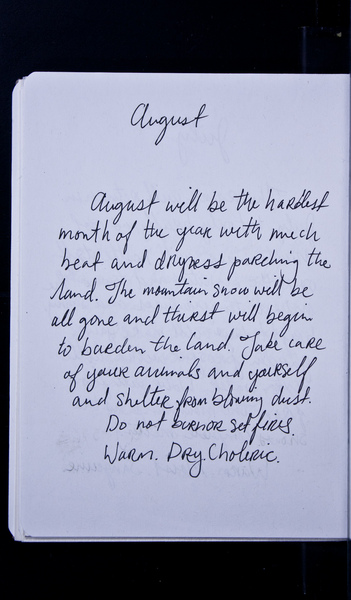 August
August will be the hardest
month of the year with much
heat and dryness parching the
land. The mountain snow will be
all gone and thirst will begin
to burden the land. Take care
of your animals and yourself
and shelter from blowing dust.
Do not burn or set fires.
Warm. Dry. Choleric.